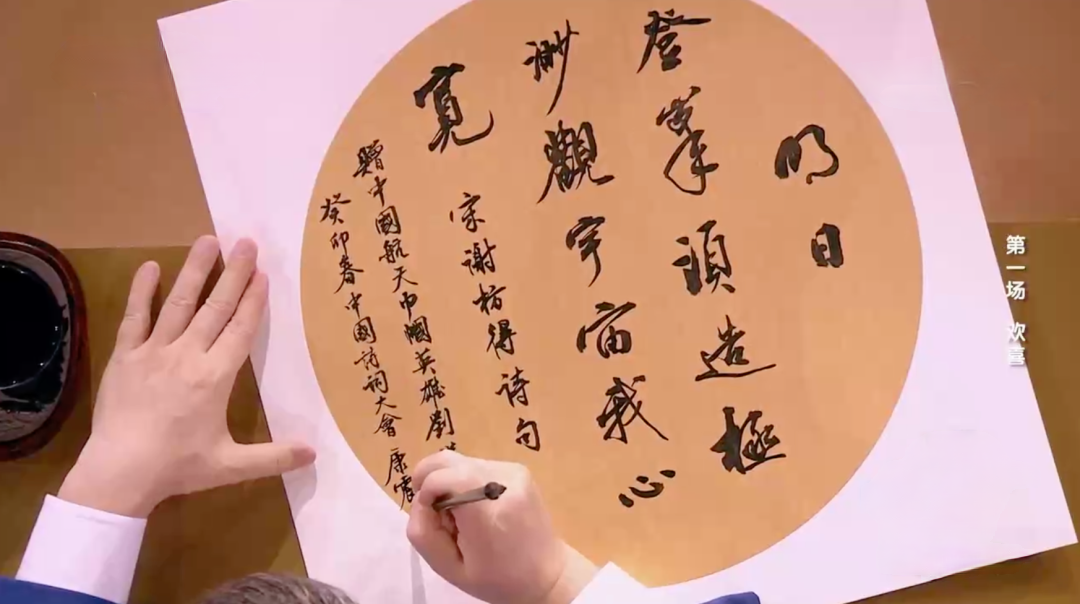 明日
登峯須造極
渺觀宇宙我心
寬
宋謝枋得詩句
贈中國航天巾幗英雄劉
癸卯春中國詩詞大會康震
第一场 欢喜